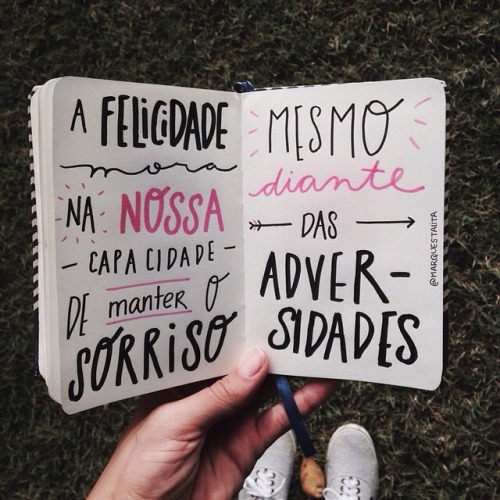 A FELICIDADE
mora
NA NOSSA
- CAPACIDADE -
DE manter O
SORRISO
MESMO
diante
DAS
ADVER-
SIDADES
@MARQUESTALITA